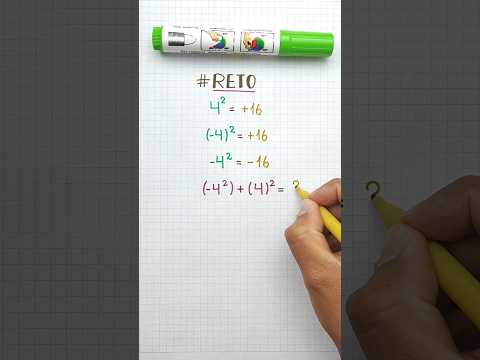 #RETO
4² = +16
(-4)² = +16
-4² = -16
(-4²) + (4)² = ?